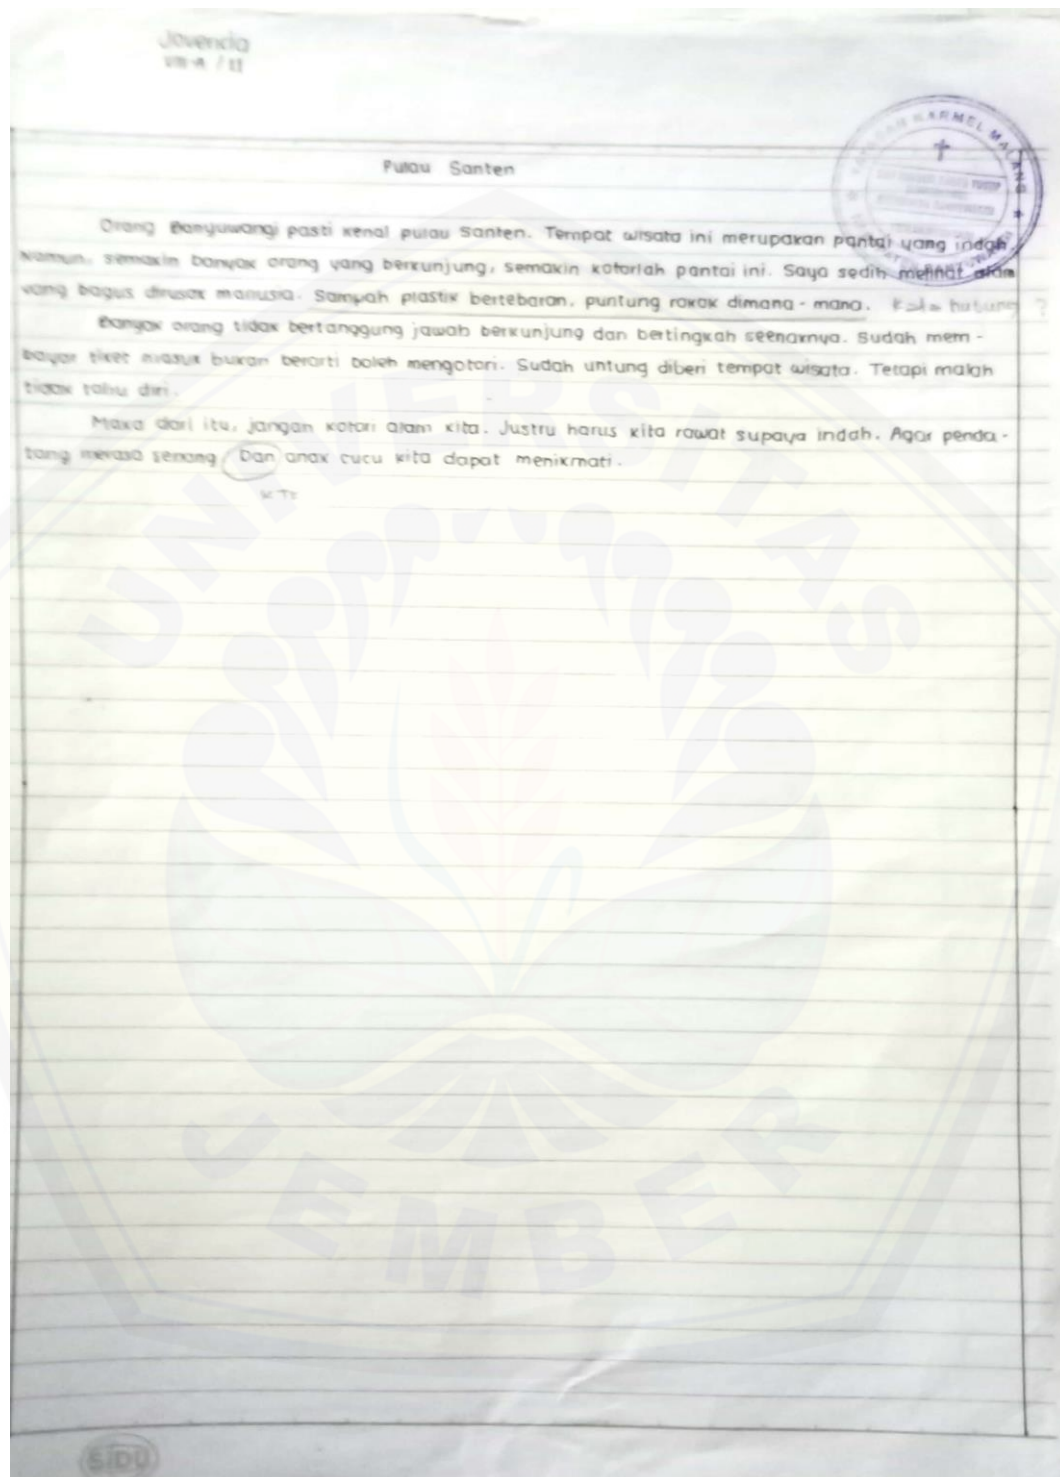 Jovencia
VIII-A / 11
YAYASAN KARMEL MALANG
Pulau Santen
Orang Banyuwangi pasti kenal pulau Santen. Tempat wisata ini merupakan pantai yang indah.
Namun, semakin banyak orang yang berkunjung, semakin kotorlah pantai ini. Saya sedih melihat alam
yang bagus dirusak manusia. Sampah plastik bertebaran, puntung rokok dimana-mana. Kata hubung ?
Banyak orang tidak bertanggung jawab berkunjung dan bertingkah seenaknya. Sudah mem-
bayar tiket masuk bukan berarti boleh mengotori. Sudah untung diberi tempat wisata. Tetapi malah
tidak tahu diri.
Maka dari itu, jangan kotori alam kita. Justru harus kita rawat supaya indah. Agar penda-
tang merasa senang Dan anak cucu kita dapat menikmati.
UNIVERSITAS
JEMBER
SIDU